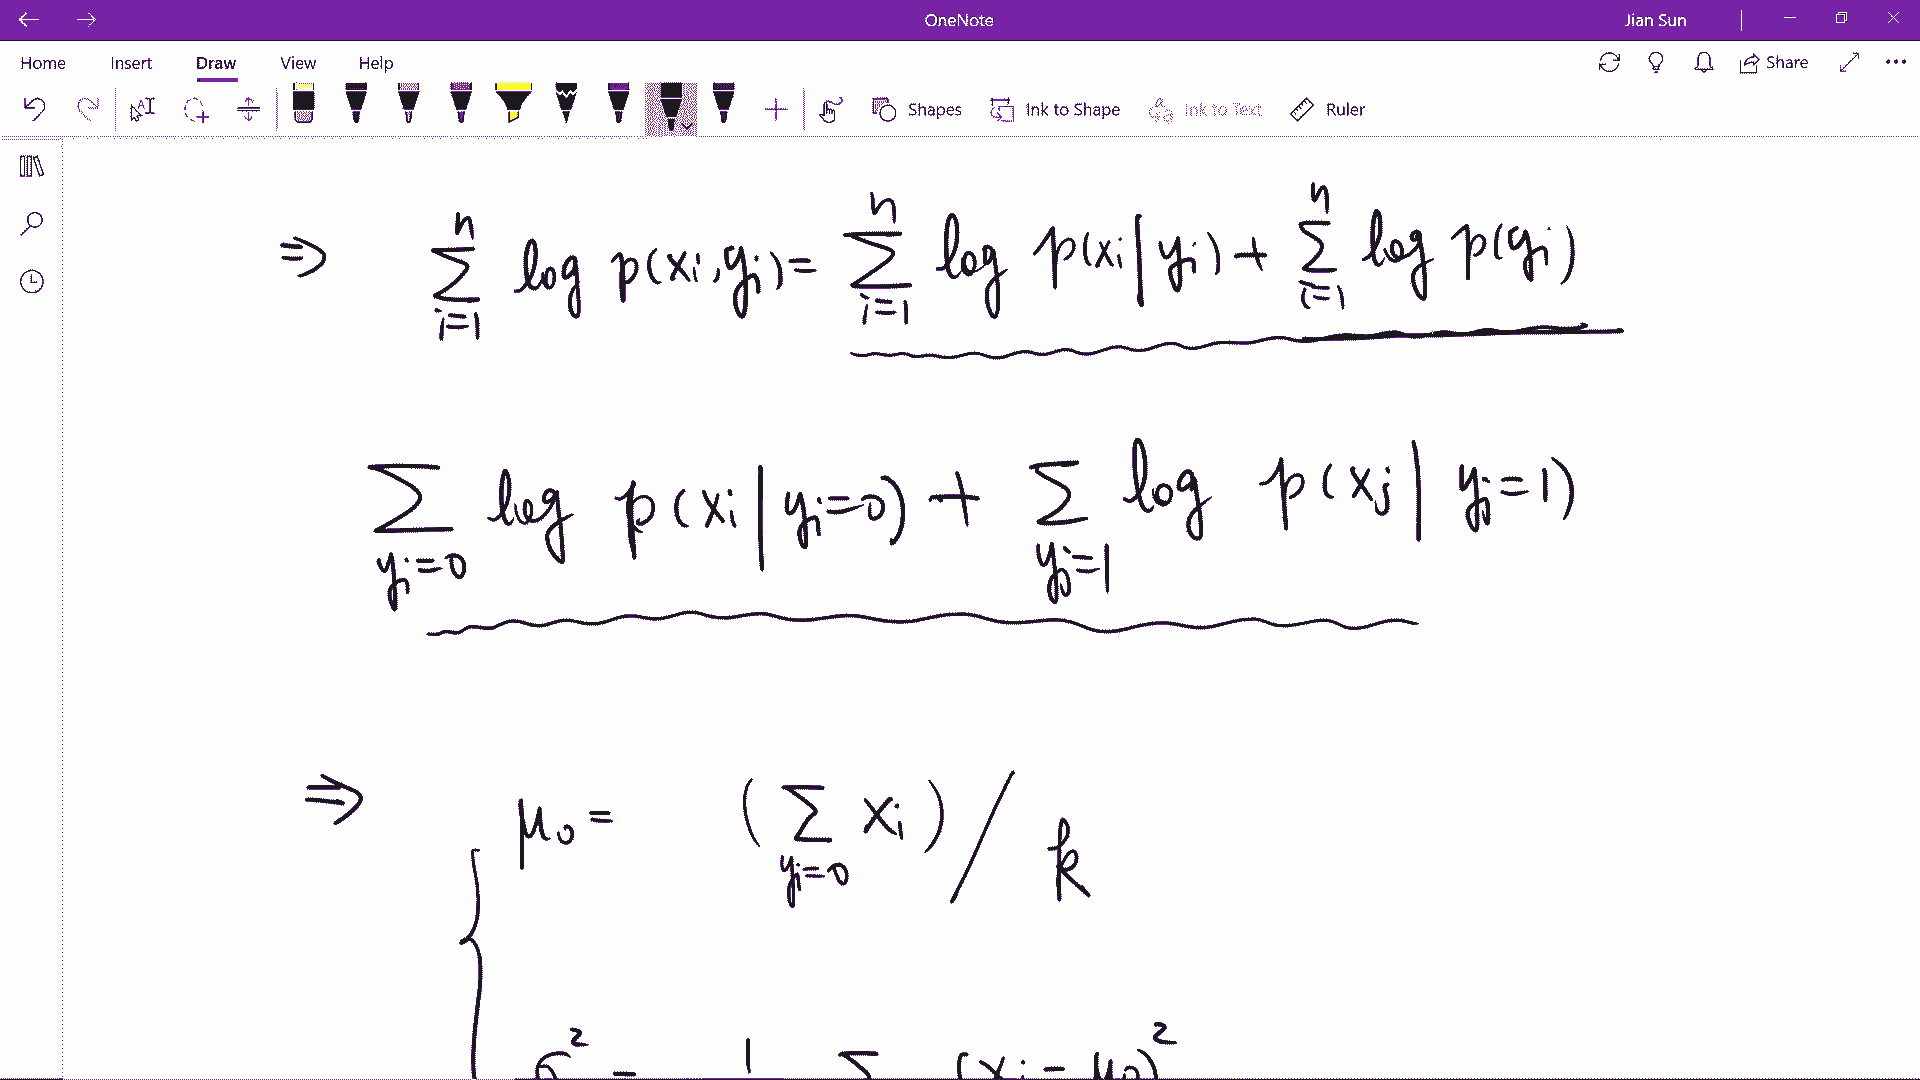 OneNote
Jian Sun
Home Insert Draw View Help
Share
Shapes Ink to Shape Ink to Text Ruler
⇒ ∑_{i=1}^{n} log p(xi, yi) = ∑_{i=1}^{n} log p(xi | yi) + ∑_{i=1}^{n} log p(yi)
∑_{yi=0} log p(xi | yi=0) + ∑_{yj=1} log p(xj | yj=1)
⇒ μ₀ = (∑_{yi=0} xi) / k
σ² = 1 ∑ (xi − μ₀)²